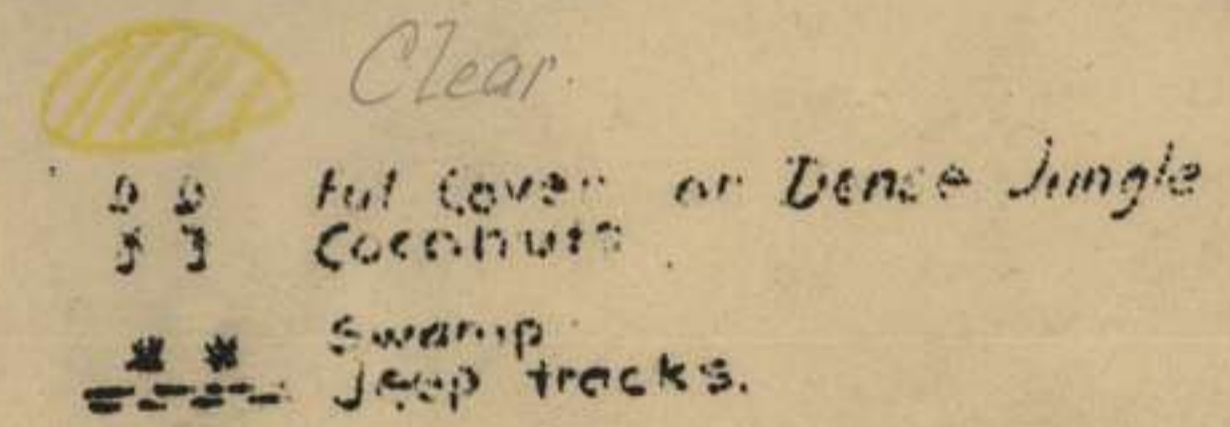 Clear.
Ful Cover or Dense Jungle
Coconuts.
Swamp
Jeep tracks.